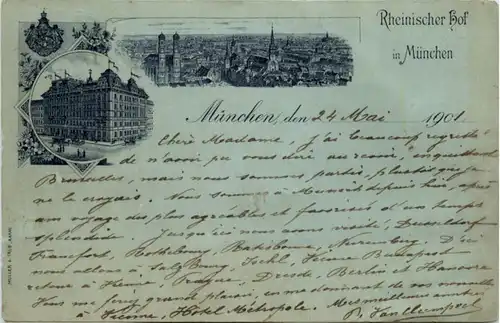 Rheinischer Hof
in München
München, den 24 Mai 1901
Chère Madame, j'ai beaucoup regretté
de n'avoir pu vous dire au revoir, en quittant
Bruxelles, mais nous sommes partis plus tôt que je
ne le croyais. Nous sommes à Munich depuis hier, après
un voyage des plus agréables et favorisés d'un temps
splendide. Jusqu'ici nous avons visité, Dusseldorf
Francfort, Rothebourg, Ratisbonne, Nuremberg. D'ici
nous allons à Salzbourg, Ischl, Vienne Budapest
retour à Vienne, Prague, Dresde, Berlin et Hanovre
Vous me ferez grand plaisir, en me donnant de vos nouvelles
à Vienne, Hôtel Métropole. Mes meilleures amitiés